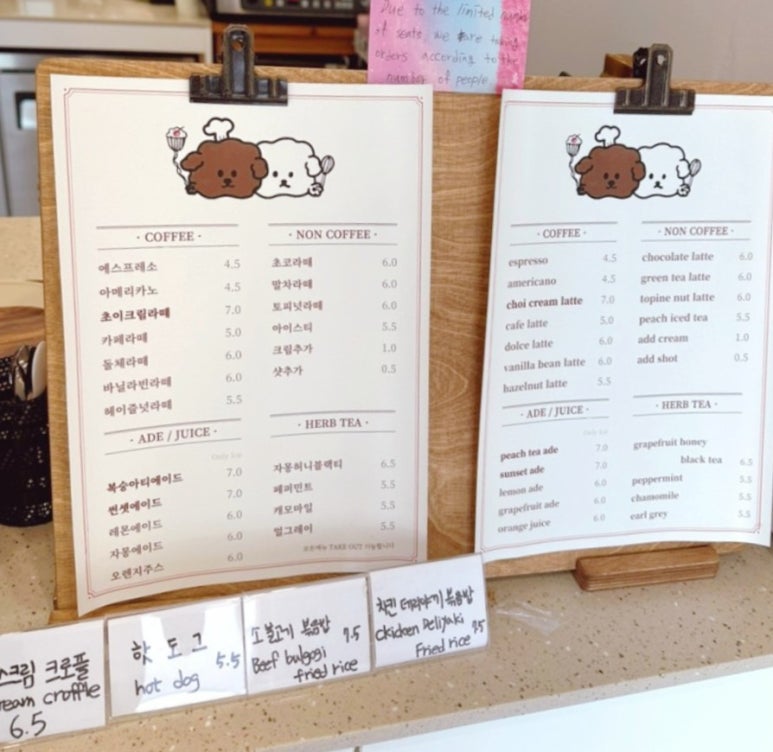 Due to the limited
of seats, we are taking
orders according to the
number of people
· COFFEE ·
에스프레소 4.5
아메리카노 4.5
초이크림라떼 7.0
카페라떼 5.0
돌체라떼 6.0
바닐라빈라떼 6.0
헤이즐넛라떼 5.5
· NON COFFEE ·
초코라떼 6.0
말차라떼 6.0
토피넛라떼 6.0
아이스티 5.5
크림추가 1.0
샷추가 0.5
· ADE / JUICE ·
Only Ice
복숭아티에이드 7.0
썬셋에이드 7.0
레몬에이드 6.0
자몽에이드 6.0
오렌지주스 6.0
· HERB TEA ·
자몽허니블랙티 6.5
페퍼민트 5.5
캐모마일 5.5
얼그레이 5.5
모든메뉴 TAKE OUT 가능합니다
· COFFEE ·
espresso 4.5
americano 4.5
choi cream latte 7.0
cafe latte 5.0
dolce latte 6.0
vanilla bean latte 6.0
hazelnut latte 5.5
· NON COFFEE ·
chocolate latte 6.0
green tea latte 6.0
topine nut latte 6.0
peach iced tea 5.5
add cream 1.0
add shot 0.5
· ADE / JUICE ·
Only Ice
peach tea ade 7.0
sunset ade 7.0
lemon ade 6.0
grapefruit ade 6.0
orange juice 6.0
· HERB TEA ·
grapefruit honey
black tea 6.5
peppermint 5.5
chamomile 5.5
earl grey 5.5
스크림 크로플
ream croffle
6.5
핫 도 그 5.5
hot dog
소불고기 볶음밥 7.5
Beef bulgogi
fried rice
치킨 데리야끼 볶음밥
Ckicken Deliyaki
Fried rice 7.5